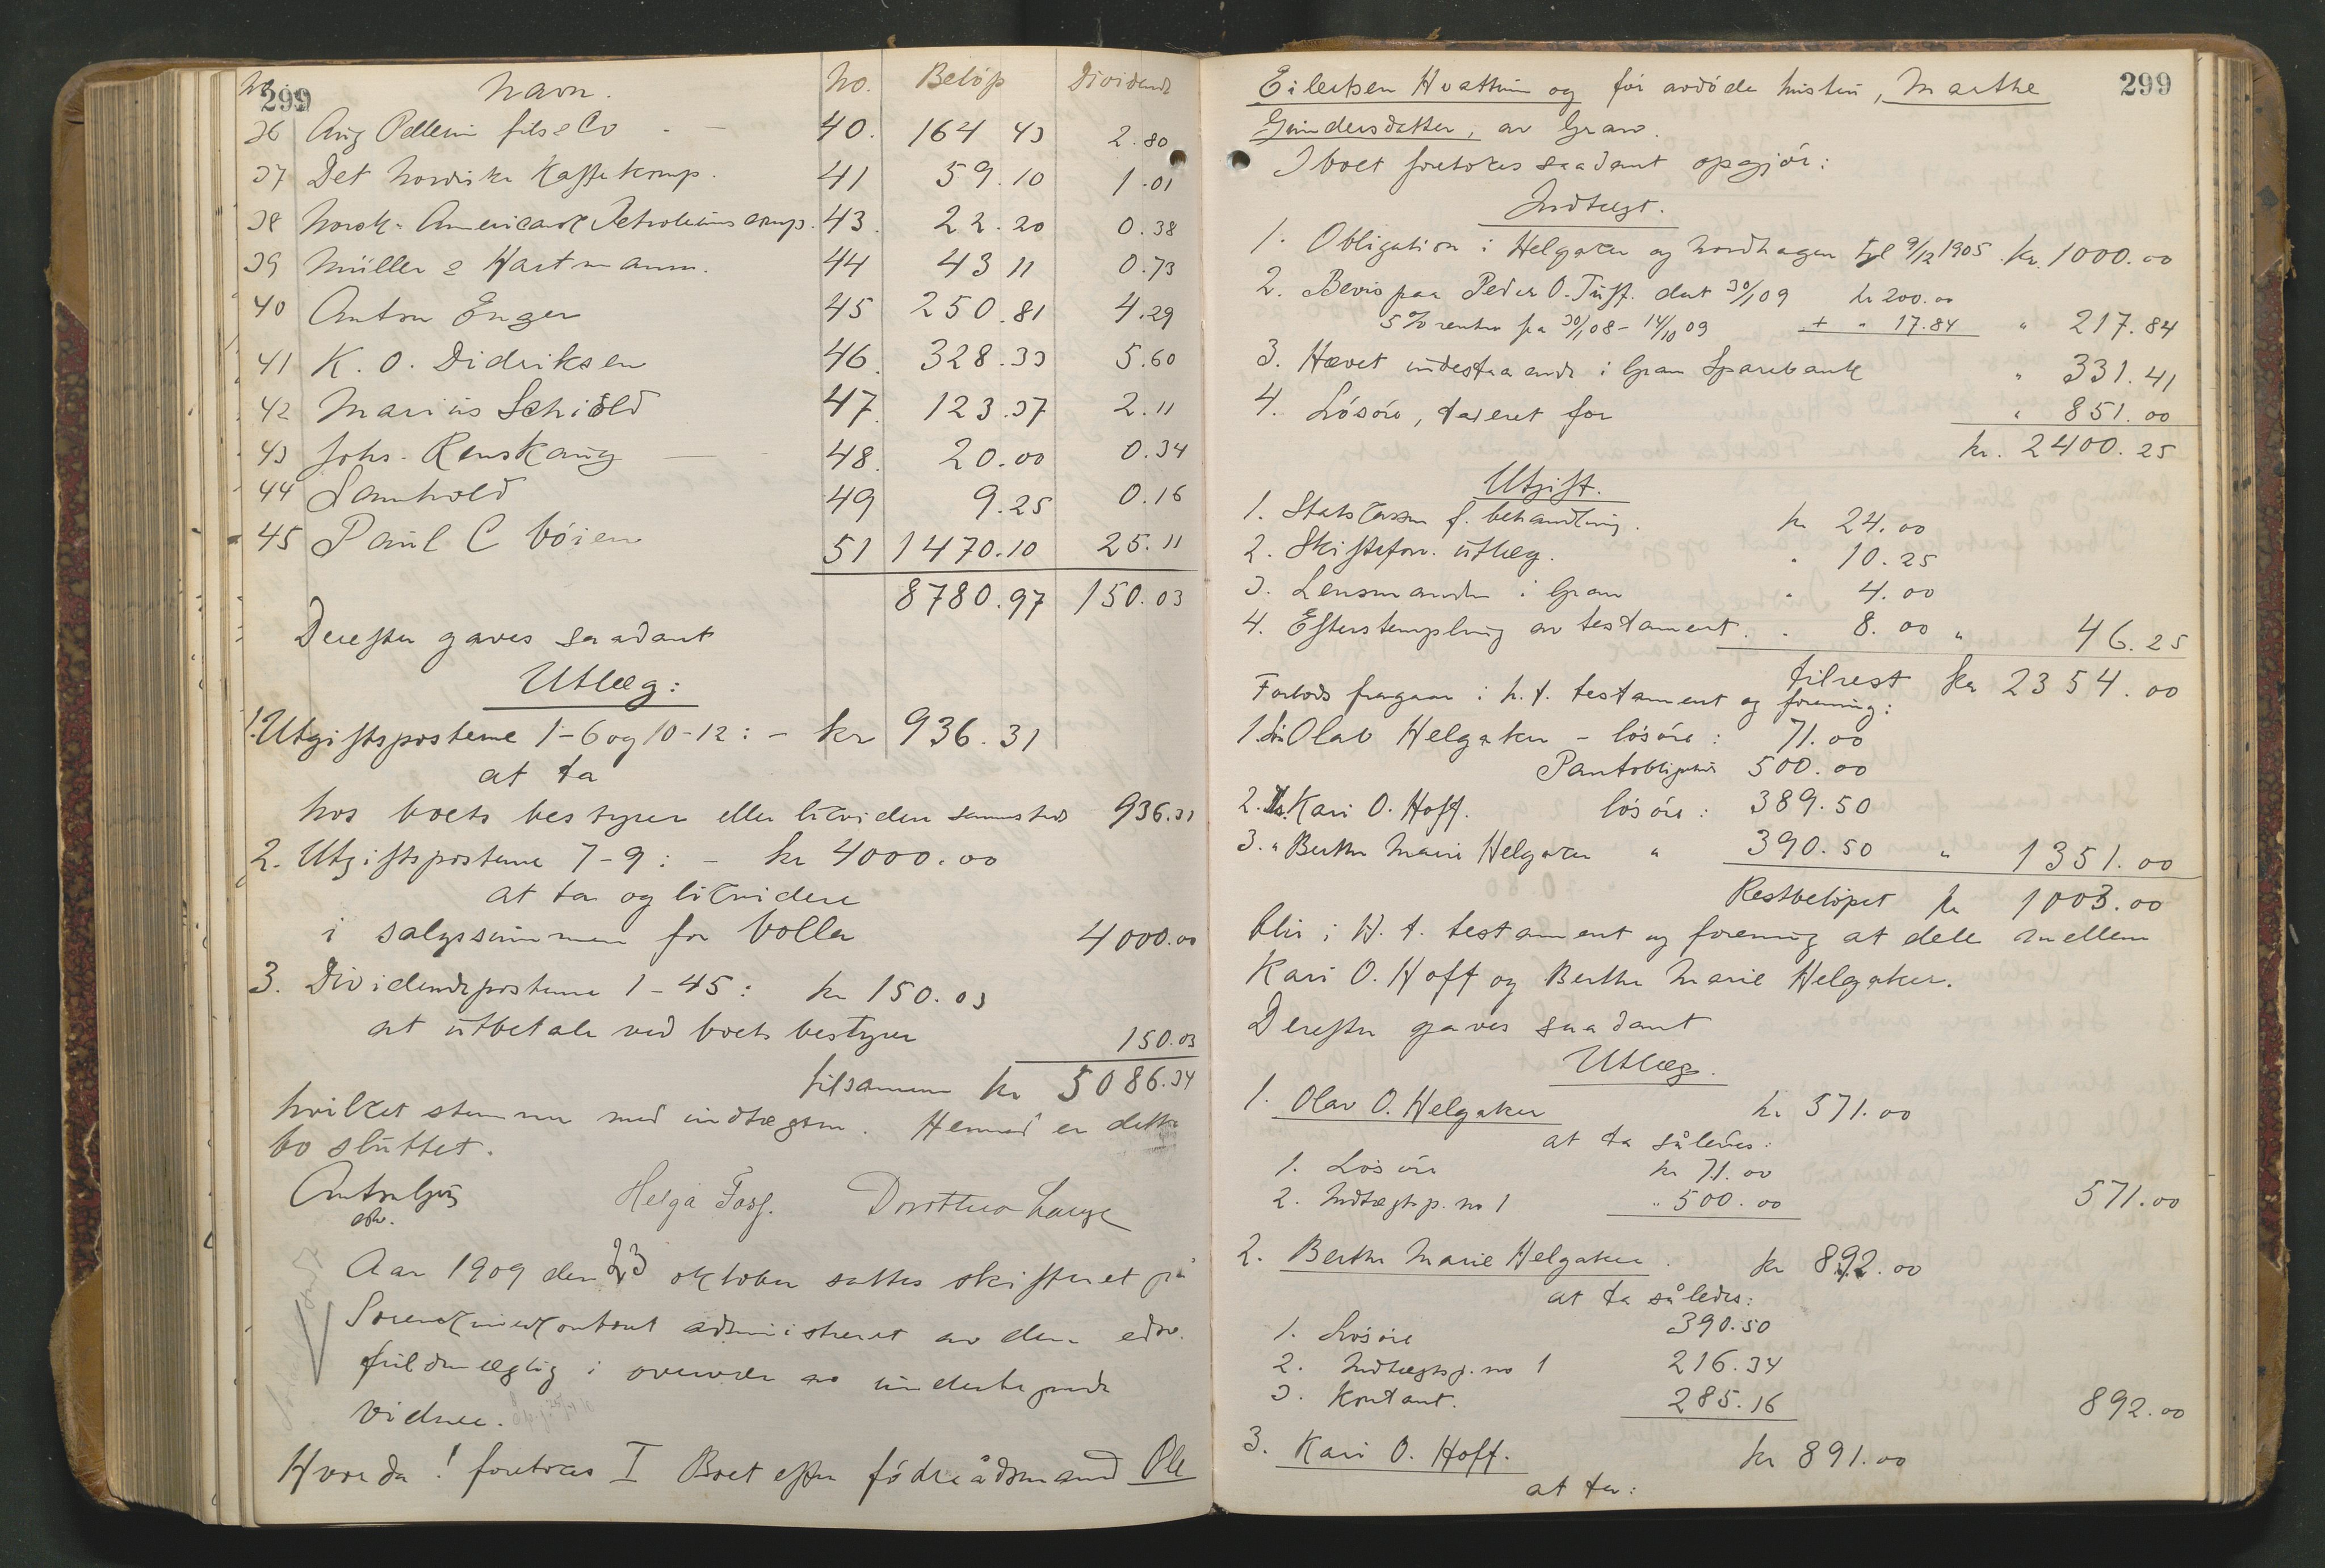 299
No Navn. No. Beløp Dividende
36 Aug Pellerin fils & Co - 40. 164 43 2.80
37 Det Nordiske Kaffekomp. 41 59.10 1.01
38 Norsk-Americansk Petroleumscomp. 43. 22.20 0.38
39 Müller & Hartmann. 44 43 11 0.73
40 Anton Enger 45 250.81 4.29
41 K. O. Didriksen 46. 328.33 5.60
42 Marius Schiöld 47. 123.37 2.11
43 Johs. Renskaug 48. 20.00 0.34
44 Samhold 49 9.25 0.16
45 Paul C Bøien 51 1470.10 25.11
8780.97 150.03
Derefter gaves saadant
Utlæg:
1. Utgiftsposterne 1-6 og 10-12: - kr 936.31
at ta
hos boets bestyrer eller likvidere sammesteds 936.31
2. Utgiftsposterne 7-9: - kr 4000.00
at ta og likvidere
i salgssummen for Volla 4000.00
3. Dividendeposterne 1-45: kr 150.03
at utbetale ved boets bestyrer 150.03
tilsammen kr 5086.34
hvilket stemmer med indtægten. Hermed er dette
bo sluttet.
Helga Dorothea Lange
Aar 1909 den 23 oktober sattes skifteret på
Sorenskriverkontoret administreret av den edsv.
fuldmægtig i overvær av undertegnede
Vidner.
Hvorda! foretokes I Boet efter føderådsmand Ole
299
Eilertsen Hvattum og før avdøde hustru, Marthe
Gundersdatter, av Gran.
I boet foretokes saadant opgjør:
Indtægt.
1. Obligation i Helgaker og Nordhagen tgl 9/12 1905 kr. 1000.00
2. Bevis paa Peder O. Tuff. dat 30/1 09 kr 200.00
5% renter fra 30/1 08 - 14/10 09 + " 17.84 " 217.84
3. Hævet indestaaende i Gran Sparebank " 331.41
4. Løsøre, taxeret for " 851.00
kr. 2400.25
Utgift.
1. Statskassen f. behandling. kr 24.00
2. Skifteforv. utlæg. " 10.25
3. Lensmanden i Gran " 4.00
4. Efterstempling av testament. " 8.00 " 46.25
tilrest kr 2354.00
Forlods fragaar i h.t. testament og forening:
1. Søn Olav Helgaker - løsøre: 71.00
Pantobligation 500.00
2. Dr. Kari O. Hoff. løsøre: 389.50
3. " Berthe Marie Helgaker " 390.50 " 1351.00
Restbeløpet kr 1003.00
blir i H. t. testament og forening at dele mellem
Kari O. Hoff og Berthe Marie Helgaker.
Derefter gaves saadant
Utlæg.
1. Olav O. Helgaker kr 571.00
at ta således:
1. Løsøre kr 71.00
2. Indtægtsp. no 1 " 500.00 571.00
2. Berthe Marie Helgaker. kr 892.00
at ta således:
1. Løsøre 390.50
2. Indtægtsp. no 1 216.34
3. Kontant. 285.16 892.00
3. Kari O. Hoff. kr 891.00
at ta: